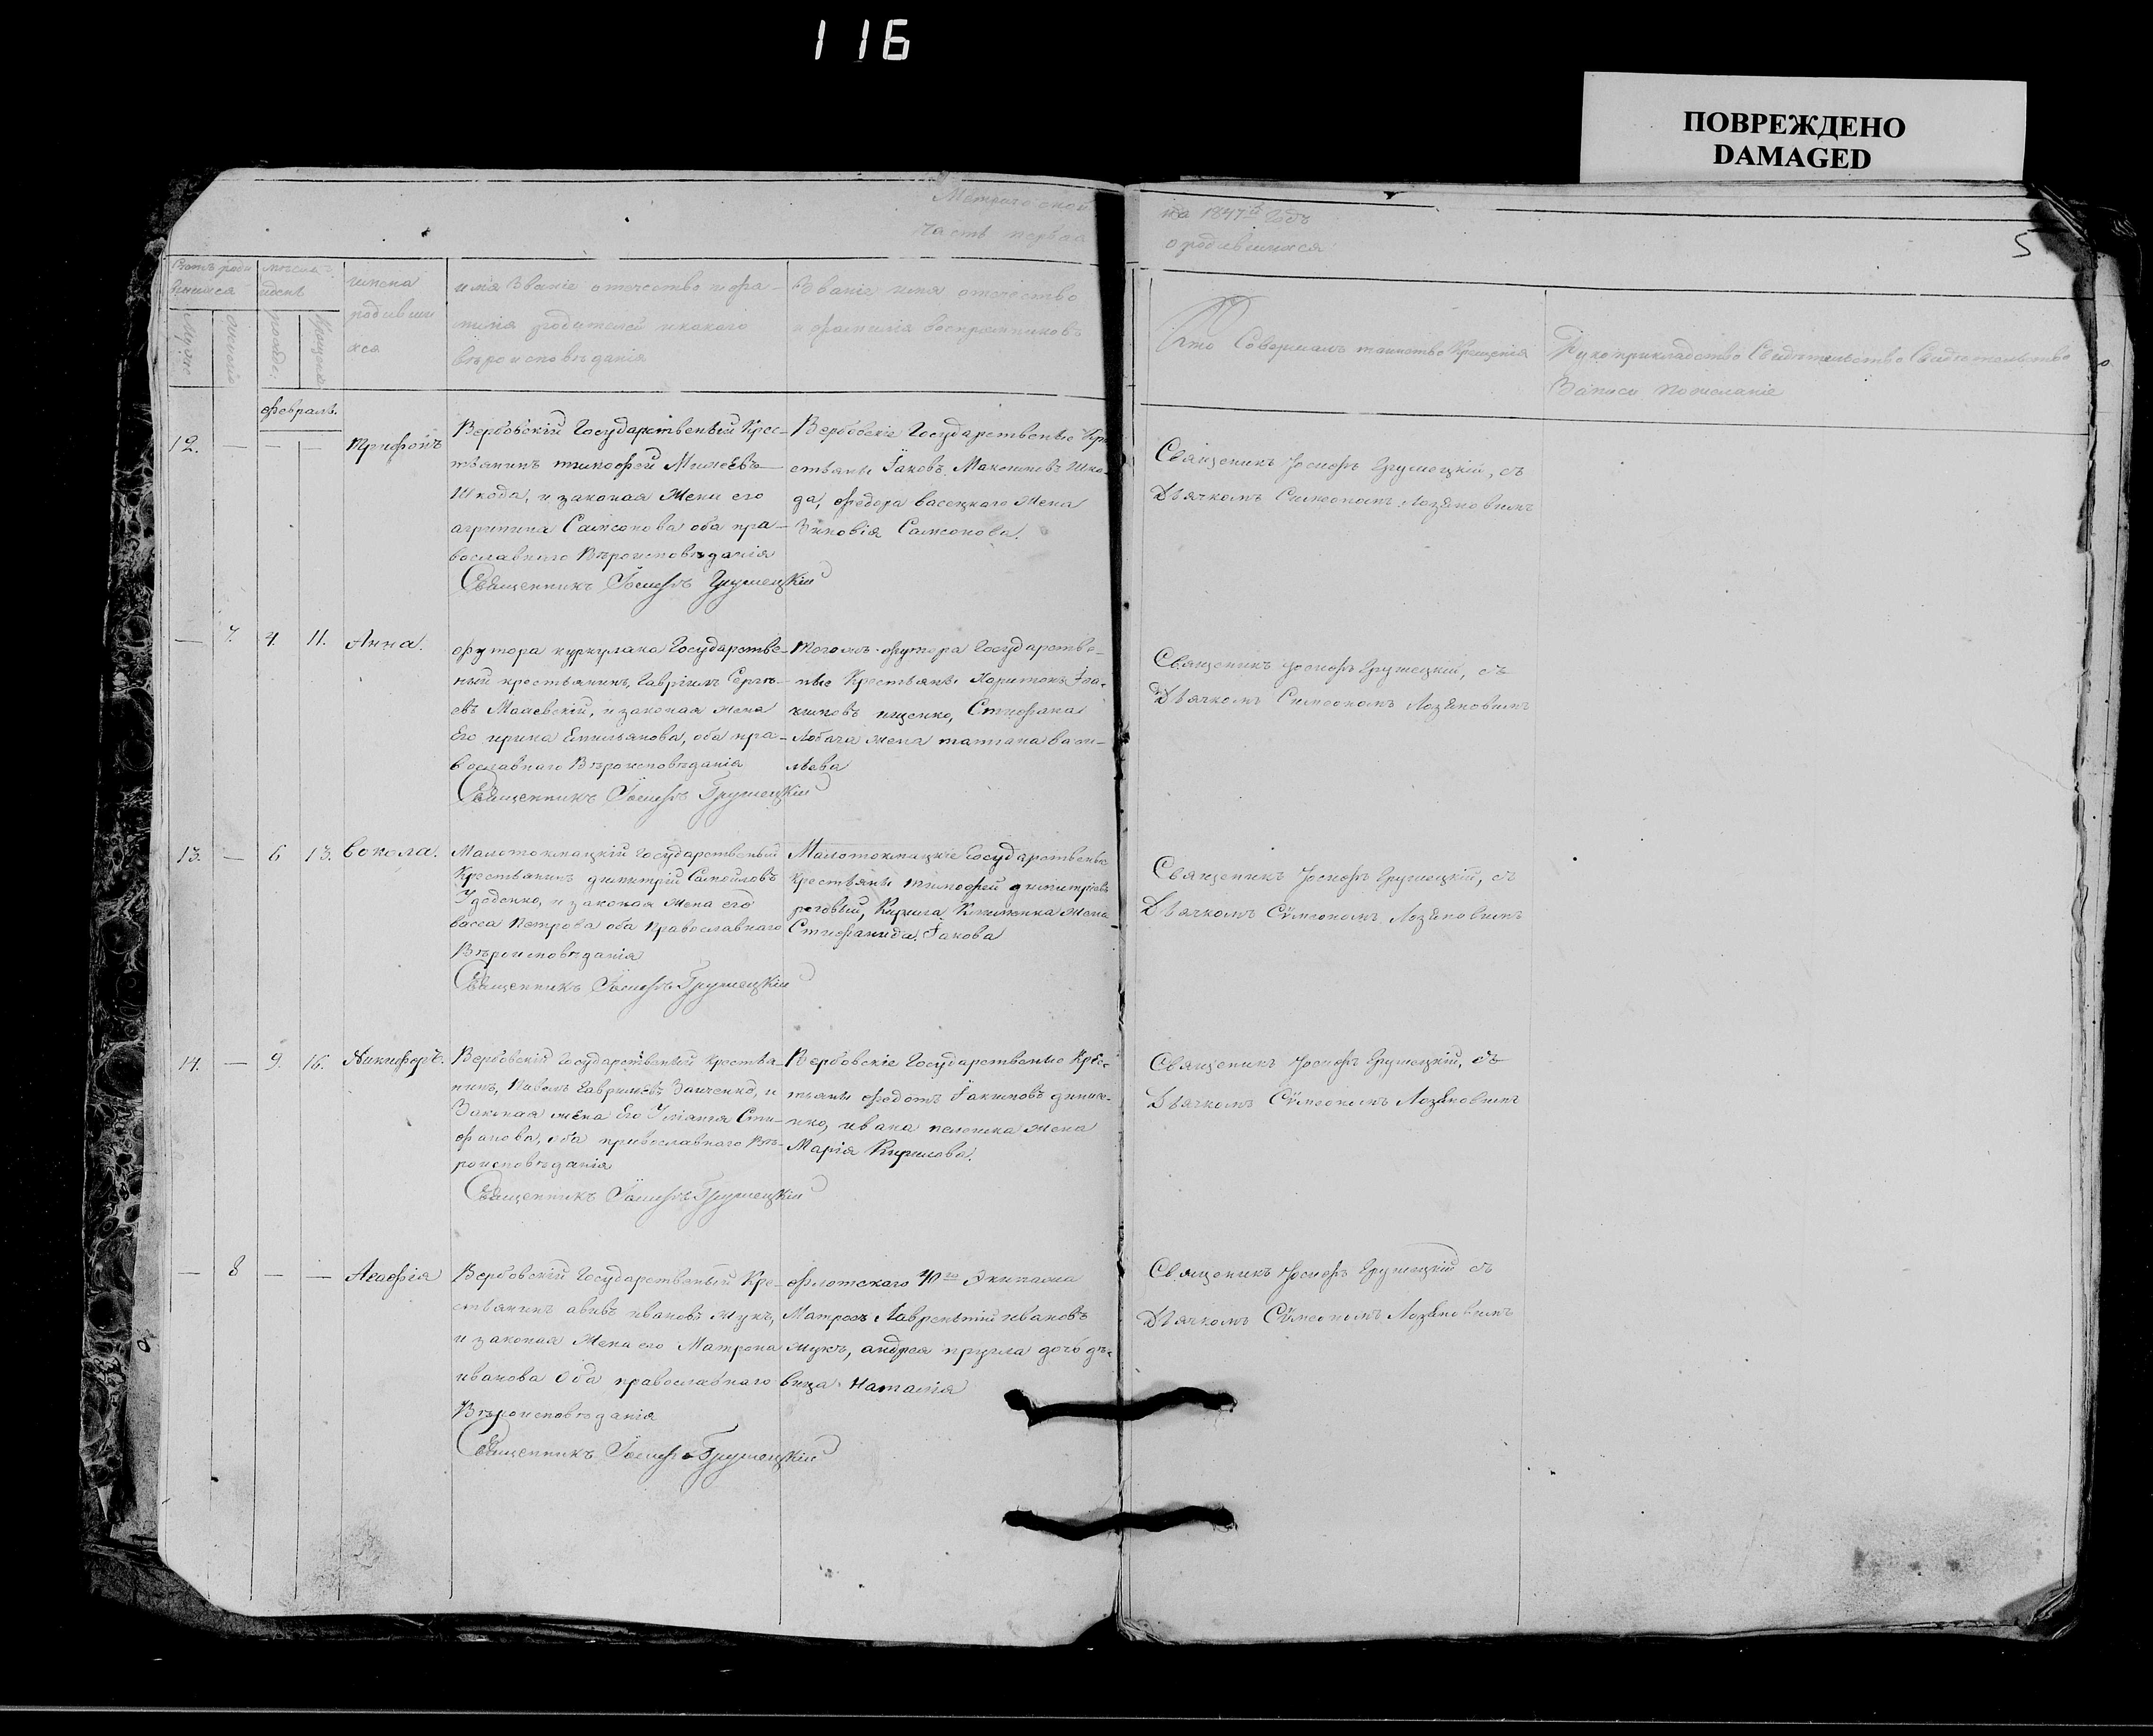 116
ПОВРЕЖДЕНО
DAMAGED
Метрической
на 1847й Годъ
Часть первая
о родившихся
5
имена
родивши
хся
имя Званіе отечество и фа-
милія родителей и какого
вѣроисповѣданія
Званіе имя отечество
и фамилія воспріемниковъ
Кто Совершалъ таинство Крещенія
Рукоприкладство Свидѣтельство
Записи по желаніе
февраль.
12. — — — Трифонъ
Вербовскій Государственый Крес-
тьянинъ тимофей Михеевъ
Шкода, и законая Жена его
агрипина Самсонова оба пра-
вославнаго Вѣроисповѣданія
Священникъ Іосифъ Грушецкій
Вербовскіе Государственые Кре
стьяне Іаковъ Максимовъ Шко-
да, федора васецкаго Жена
Зиновія Самсонова.
Священикъ Іосифъ Грушецкій, съ
Дьячкомъ Симеономъ Лозановимъ
— 7. 4. 11. Анна.
футора куркулака Государстве-
ный крестьянинъ, Гавріилъ Сергѣ-
евъ Маневскій, и законая жена
Его ирина Емильянова, оба пра-
вославнаго Вѣроисповѣданія
Священникъ Іосифъ Грушецкій
Тогожъ футора Государстве-
ные Крестьяне Харитонъ Іоа-
кимовъ ищенко, Стефана
Лобача жена татіана васи-
льева
Священикъ Іосифъ Грушецкій, съ
Дьячкомъ Симеономъ Лозановимъ
13. — 6 13. вокола.
Малотокмацкій Государственый
Крестьянинъ димитрій Самойловъ
Удоденко, и законая жена его
васса Петрова оба Православнаго
Вѣроисповѣданія
Священникъ Іосифъ Грушецкій
Малотокмацкіе Государственые
крестьяне тимофей димитріевъ
роговый, Кирила Клименка жена
Стефанида Іакова
Священикъ Іосифъ Грушецкій, съ
Дьячкомъ Сѵмеономъ Лозановимъ
14. — 9. 16. Никифоръ.
Вербовскій Государственый Крестья-
нинъ, Павелъ Гавриловъ Заиченко, и
Законая жена Его Уліанія Сте-
фанова, оба православнаго Вѣ-
роисповѣданія
Священникъ Іосифъ Грушецкій
Вербовскіе Государственые Крес-
тьяне федотъ Іакимовъ
нко, ивана жена
Марія Кирилова.
Священикъ Іосифъ Грушецкій, съ
Дьячкомъ Сѵмеономъ Лозановимъ
— 8 — — Агафія
Вербовскій Государственый Кре-
стьянинъ авивъ ивановъ Жукъ,
и законая Жена его Матрона
иванова Оба православнаго
Вѣроисповѣданія
Священникъ Іосифъ Грушецкій
флотскаго 40го Экипажа
Матросъ Лаврентій ивановъ
жукъ, андрея дочь дѣ-
вица Наталія
Священикъ Іосифъ Грушецкій съ
Дьячкомъ Сѵмеономъ Лозановимъ